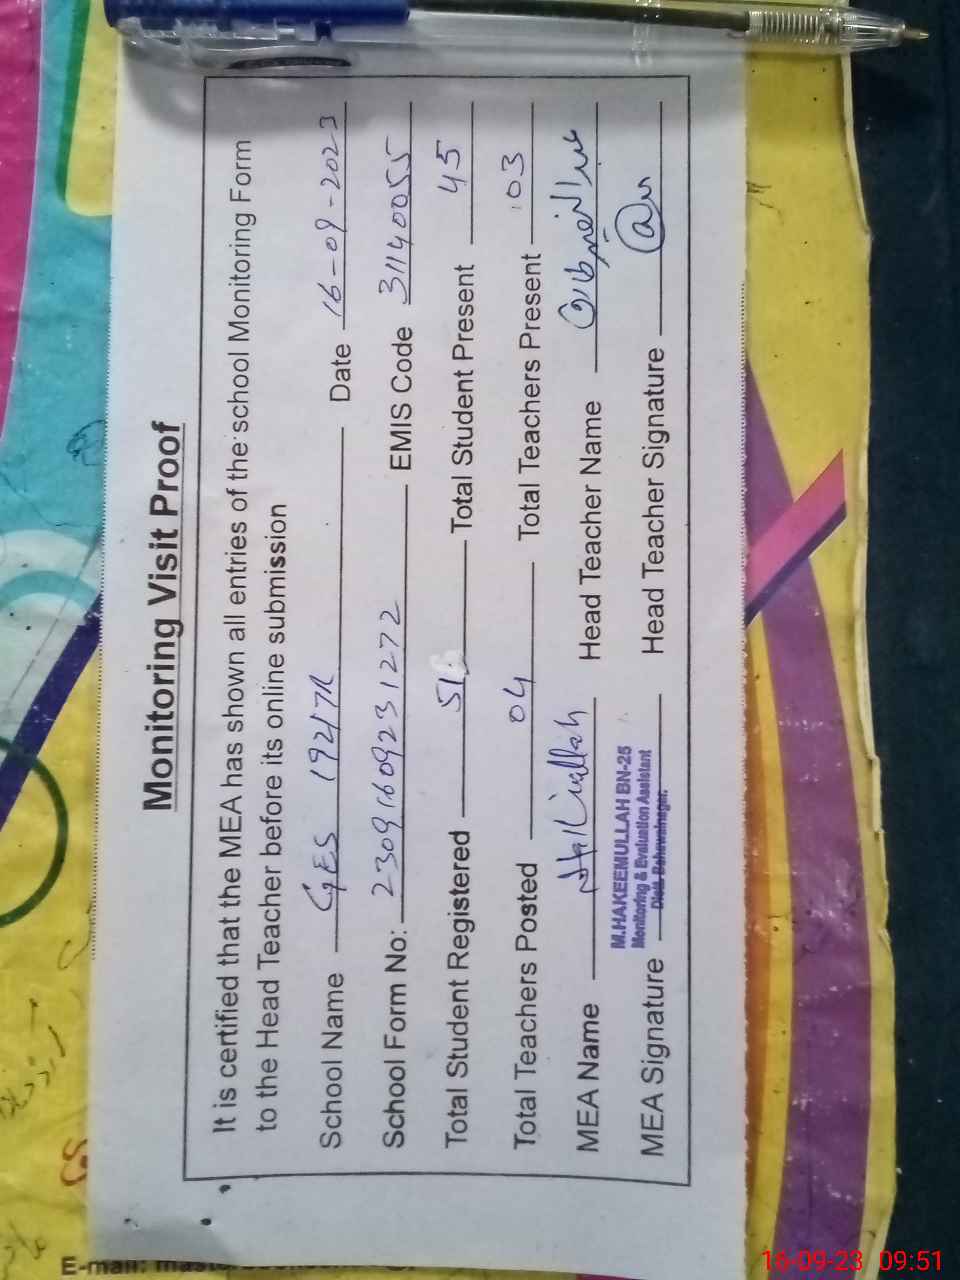 Monitoring Visit Proof
It is certified that the MEA has shown all entries of the school Monitoring Form
to the Head Teacher before its online submission
School Name GES 192/7R Date 16-09-2023
School Form No: 23091609231272 EMIS Code 31140055
Total Student Registered 51 Total Student Present 45
Total Teachers Posted 04 Total Teachers Present 03
MEA Name Head Teacher Name
M.HAKEEMULLAH BN-25
Monitoring & Evaluation Assistant
Distt. Bahawalnagar.
MEA Signature Head Teacher Signature
E-mail:
16-09-23 09:51